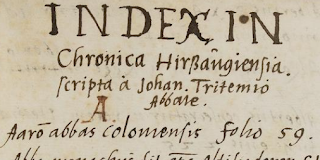 INDEX IN
Chronica Hirßaugiensia.
scripta à Johan. Tritemio
Abbate.
A.
Aarō abbas coloniensis folio 59.